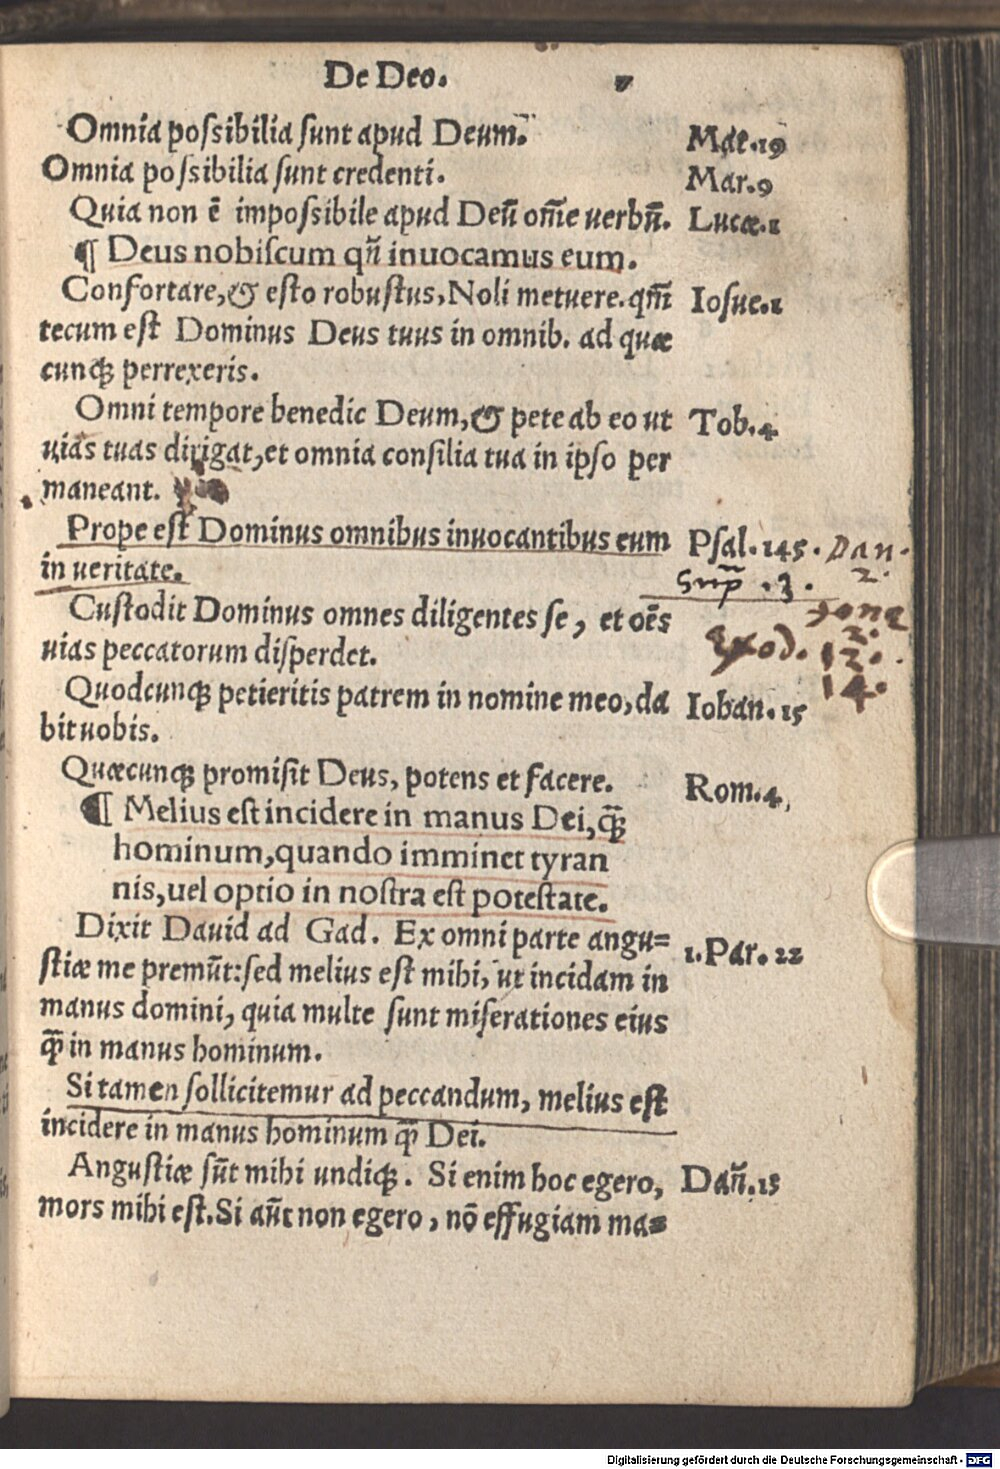 De Deo. 7
Omnia possibilia sunt apud Deum. Mat.19
Omnia possibilia sunt credenti. Mar.9
Quia non ē impossibile apud Deū om̄e uerbū. Lucæ.1
¶ Deus nobiscum qñ inuocamus eum.
Confortare,& esto robustus, Noli metuere.qm̄ Iosue.1
tecum est Dominus Deus tuus in omnib. ad quæ
cunqꝫ perrexeris.
Omni tempore benedic Deum,& pete ab eo ut Tob.4
uias tuas dirigat,et omnia consilia tua in ipso per
maneant.
Prope est Dominus omnibus inuocantibus eum Psal.145. Dan.
in ueritate. Sup̄ .3. 2.
Custodit Dominus omnes diligentes se, et oēs Jone 2.
uias peccatorum disperdet. Exod. 12. 14.
Quodcunqꝫ petieritis patrem in nomine meo, da Iohan.15
bit uobis.
Quæcunqꝫ promisit Deus, potens et facere. Rom.4,
¶ Melius est incidere in manus Dei,q̄ꝫ
hominum,quando imminet tyran
nis,uel optio in nostra est potestate.
Dixit Dauid ad Gad. Ex omni parte angu= 1.Par.22
stiæ me premūt:sed melius est mihi, ut incidam in
manus domini, quia multe sunt miserationes eius
q̄ꝫ in manus hominum.
Si tamen sollicitemur ad peccandum, melius est
incidere in manus hominum q̄ꝫ Dei.
Angustiæ sūt mihi undiqꝫ. Si enim hoc egero, Dañ.15
mors mihi est.Si aūt non egero, nō effugiam ma=
Digitalisierung gefördert durch die Deutsche Forschungsgemeinschaft - DFG